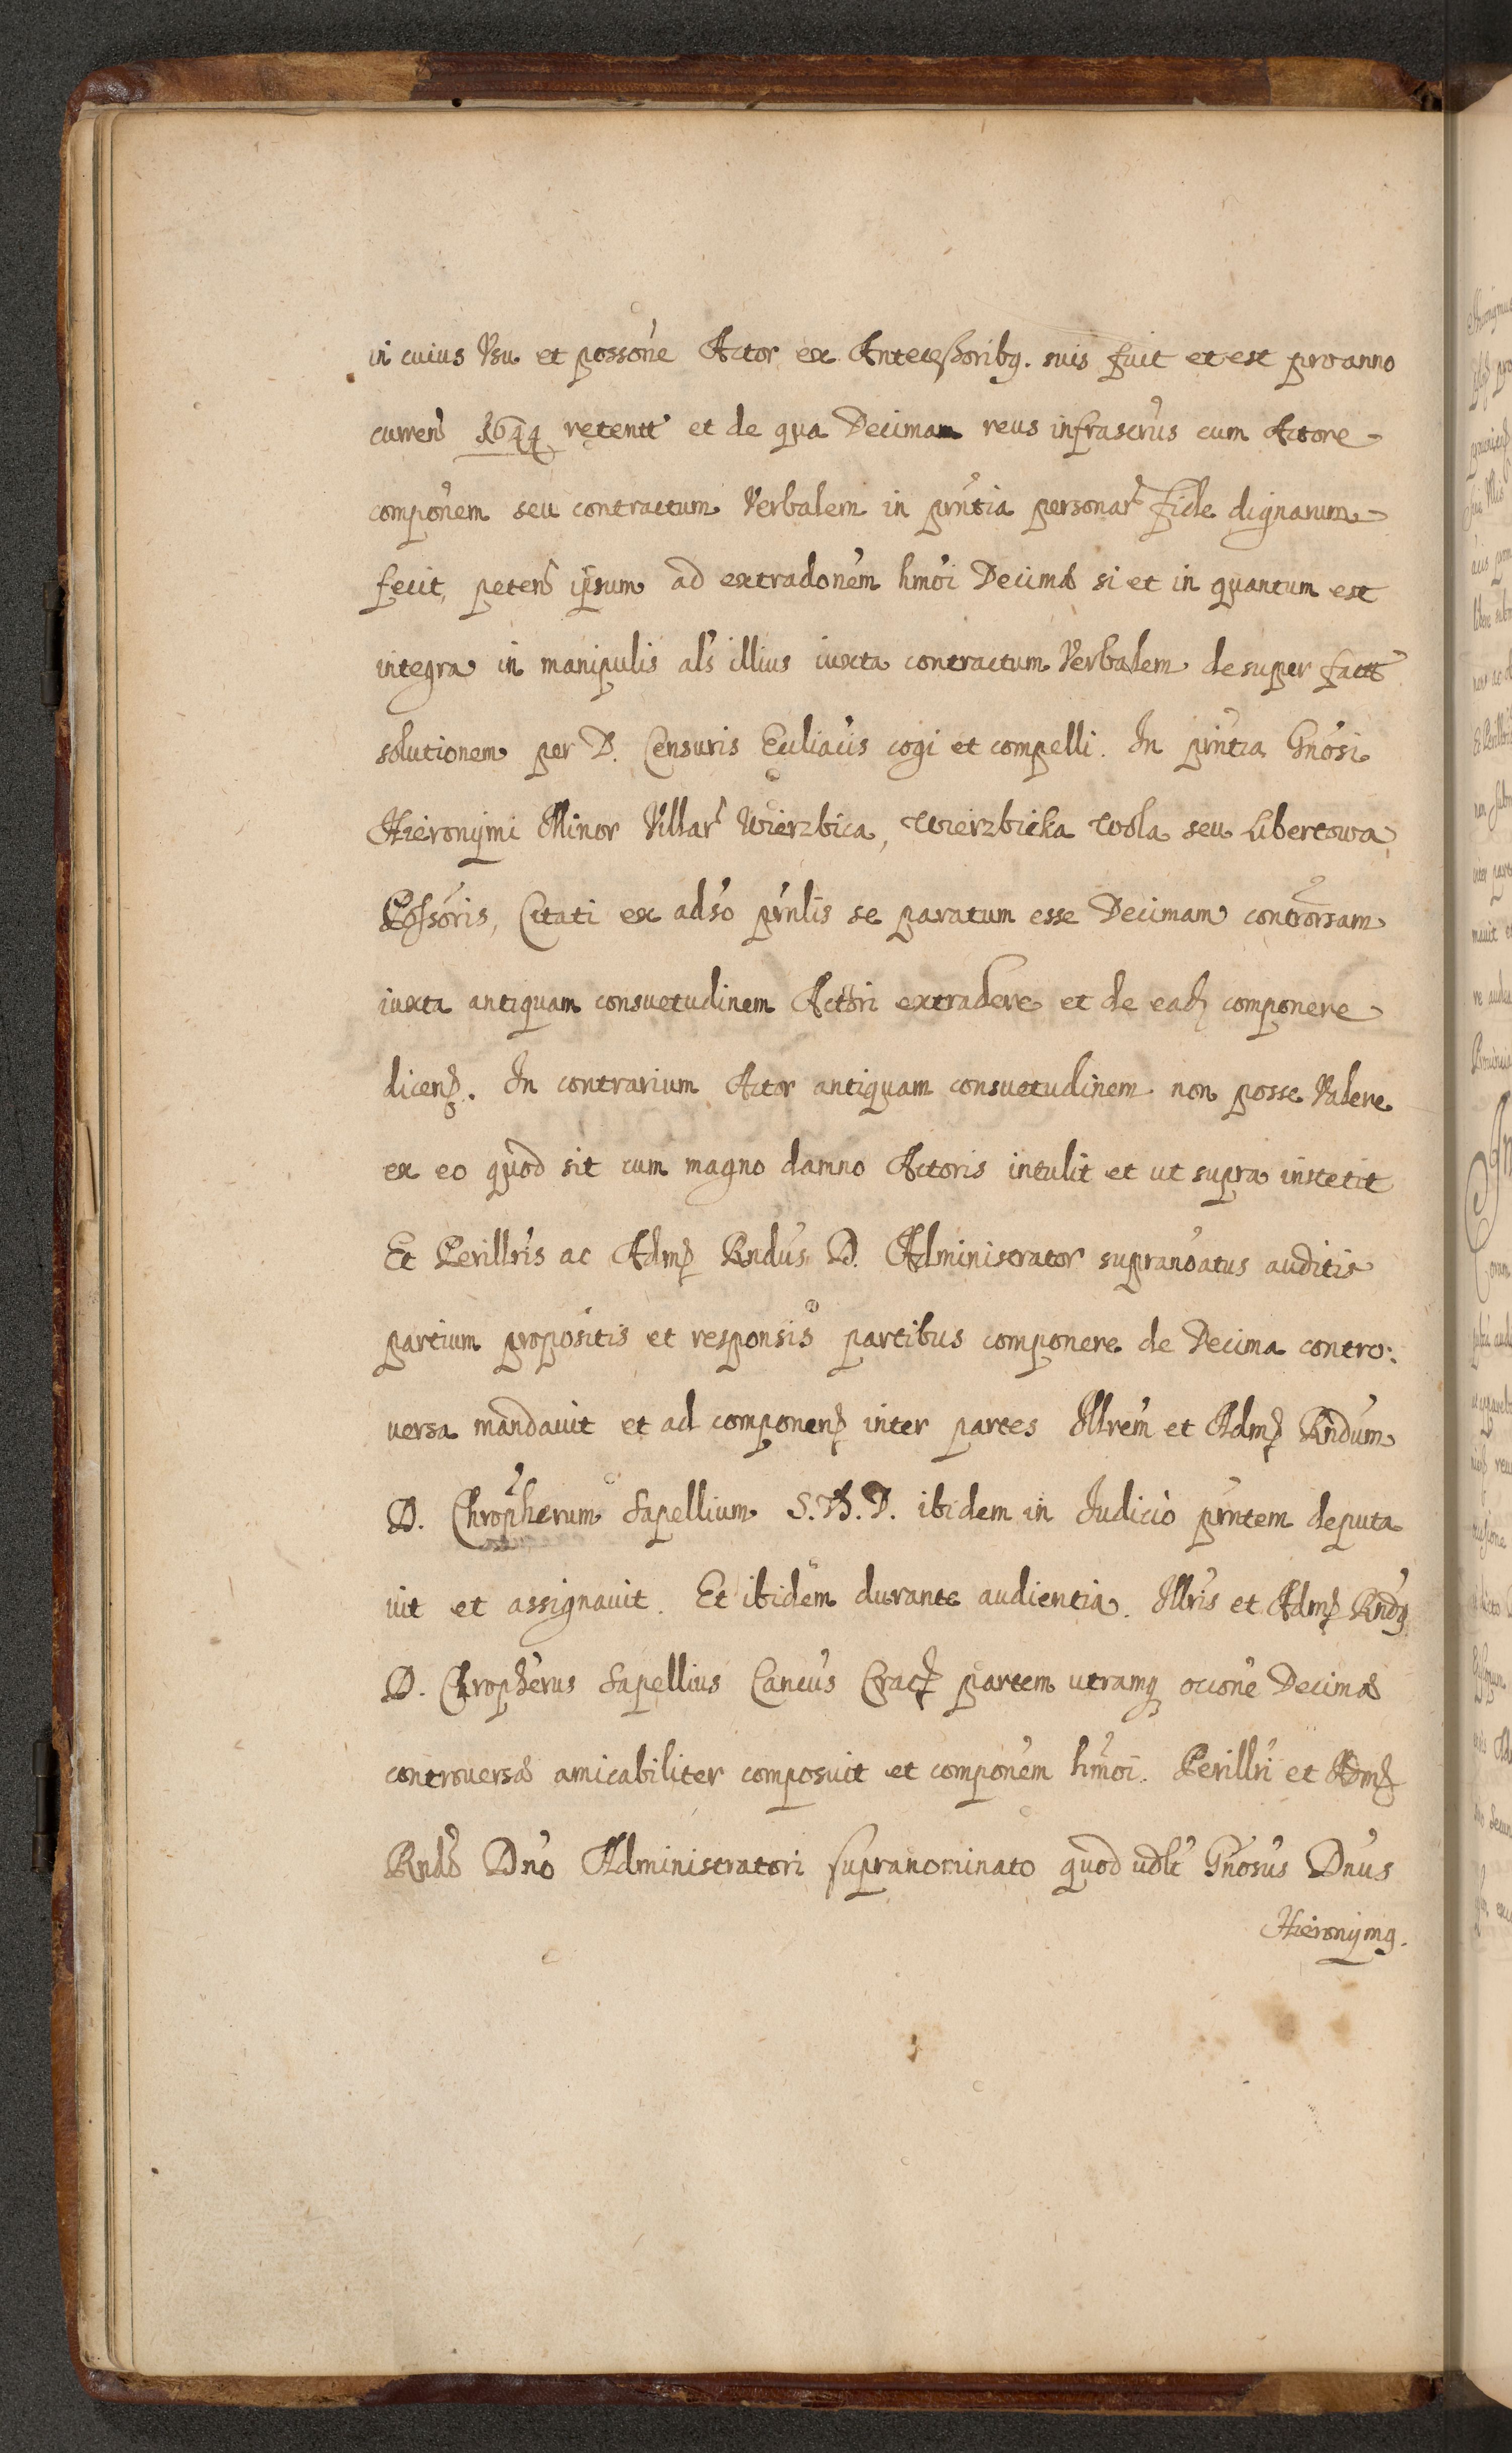 in cuius Vsu et possone Actor ex Antecessoribq. suis fuit et est pro anno
curren 1644 retentt et de qua Decimam reus infrascrus cum Actore
componem seu contractum Verbalem in prntia personar fide dignarum
fecit, peten ipsum ad extradonem hmoi Decimæ si et in quantum est
integra in manipulis als illius iuxta contractum Verbalem desuper factt
solutionem per D. Censuris Eccliacis cogi et compelli. In prntia Gnosi
Hieronymi Minor Villar Wierzbica, Wierzbicka Wola seu Libertowa
Possoris, Citati ex adso prnlis se paratum esse Decimam controrsam
iuxta antiquam consuetudinem Actori extradere et de ead componere
dicen. In contrarium Actor antiquam consuetudinem non posse Valere
ex eo quod sit cum magno damno Actoris intulit et ut supra institit
Et Perillris ac Adm Rndus D. Administrator supranoatus auditis
partium propositis et responsis partibus componere de Decima contro:
versa mandauit et ad componen inter partes Illrem et Adm Rndum
D. Chropherum Sapellium S. Th. D. ibidem in Iudicio prntem deputa
uit et assignauit. Et ibidem durante audientia. Illris et Adm Rndq
D. Chropherus Sapellius Cancus Crac partem utramq ocione Decimæ
controuersæ amicabiliter composuit et componem hmoi. Perillri et Adm
Rndo Dno Administratori supranominato quod Gnosus Dnus
Hieronymq.